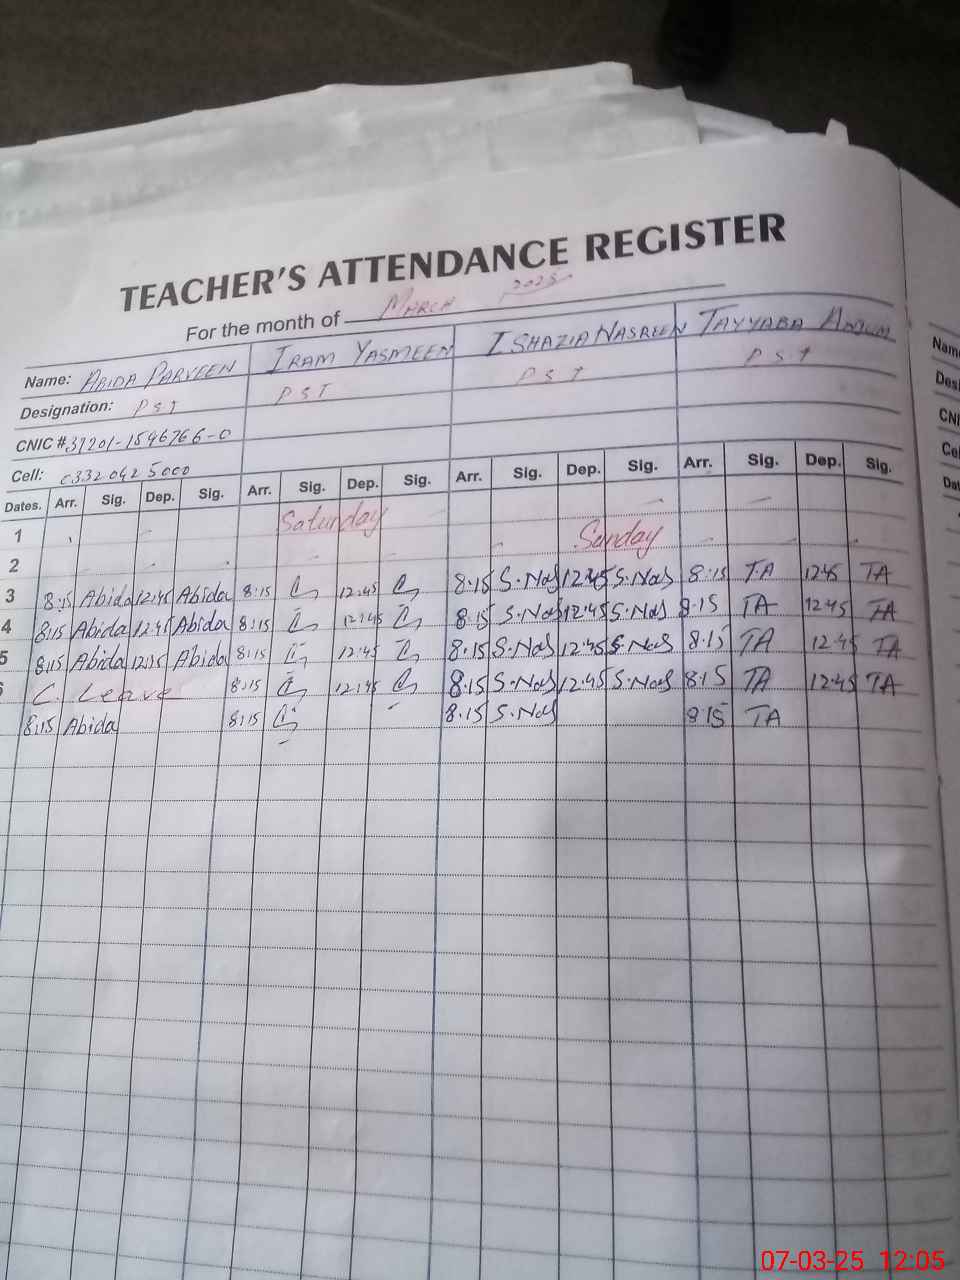 TEACHER'S ATTENDANCE REGISTER
For the month of MARCH 2025
Name: ABIDA PARVEEN IRAM YASMEEN SHAZIA NASREEN TAYYABA ANJUM
Designation: PST PST PST PST
CNIC # 37201-1596766-0
Cell: 0332 0425000
Dates. Arr. Sig. Dep. Sig. Arr. Sig. Dep. Sig. Arr. Sig. Dep. Sig. Arr. Sig. Dep. Sig.
1 Saturday
2 Sunday
3 8:15 Abida 12:45 Abida 8:15 12:45 8:15 S.Nas 12:45 S.Nas 8:15 TA 12:45 TA
4 8:15 Abida 12:45 Abida 8:15 12:45 8:15 S.Nas 12:45 S.Nas 8:15 TA 12:45 TA
5 8:15 Abida 12:15 Abida 8:15 12:45 8:15 S.Nas 12:45 S.Nas 8:15 TA 12:45 TA
C. Leave 8:15 12:45 8:15 S.Nas 12:45 S.Nas 8:15 TA 12:45 TA
8:15 Abida 8:15 8:15 S.Nas 8:15 TA
07-03-25 12:05